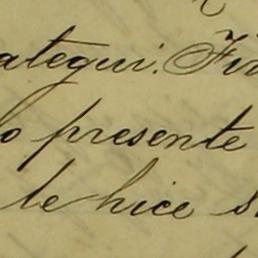 ategui. Fir
lo presente
le hice s